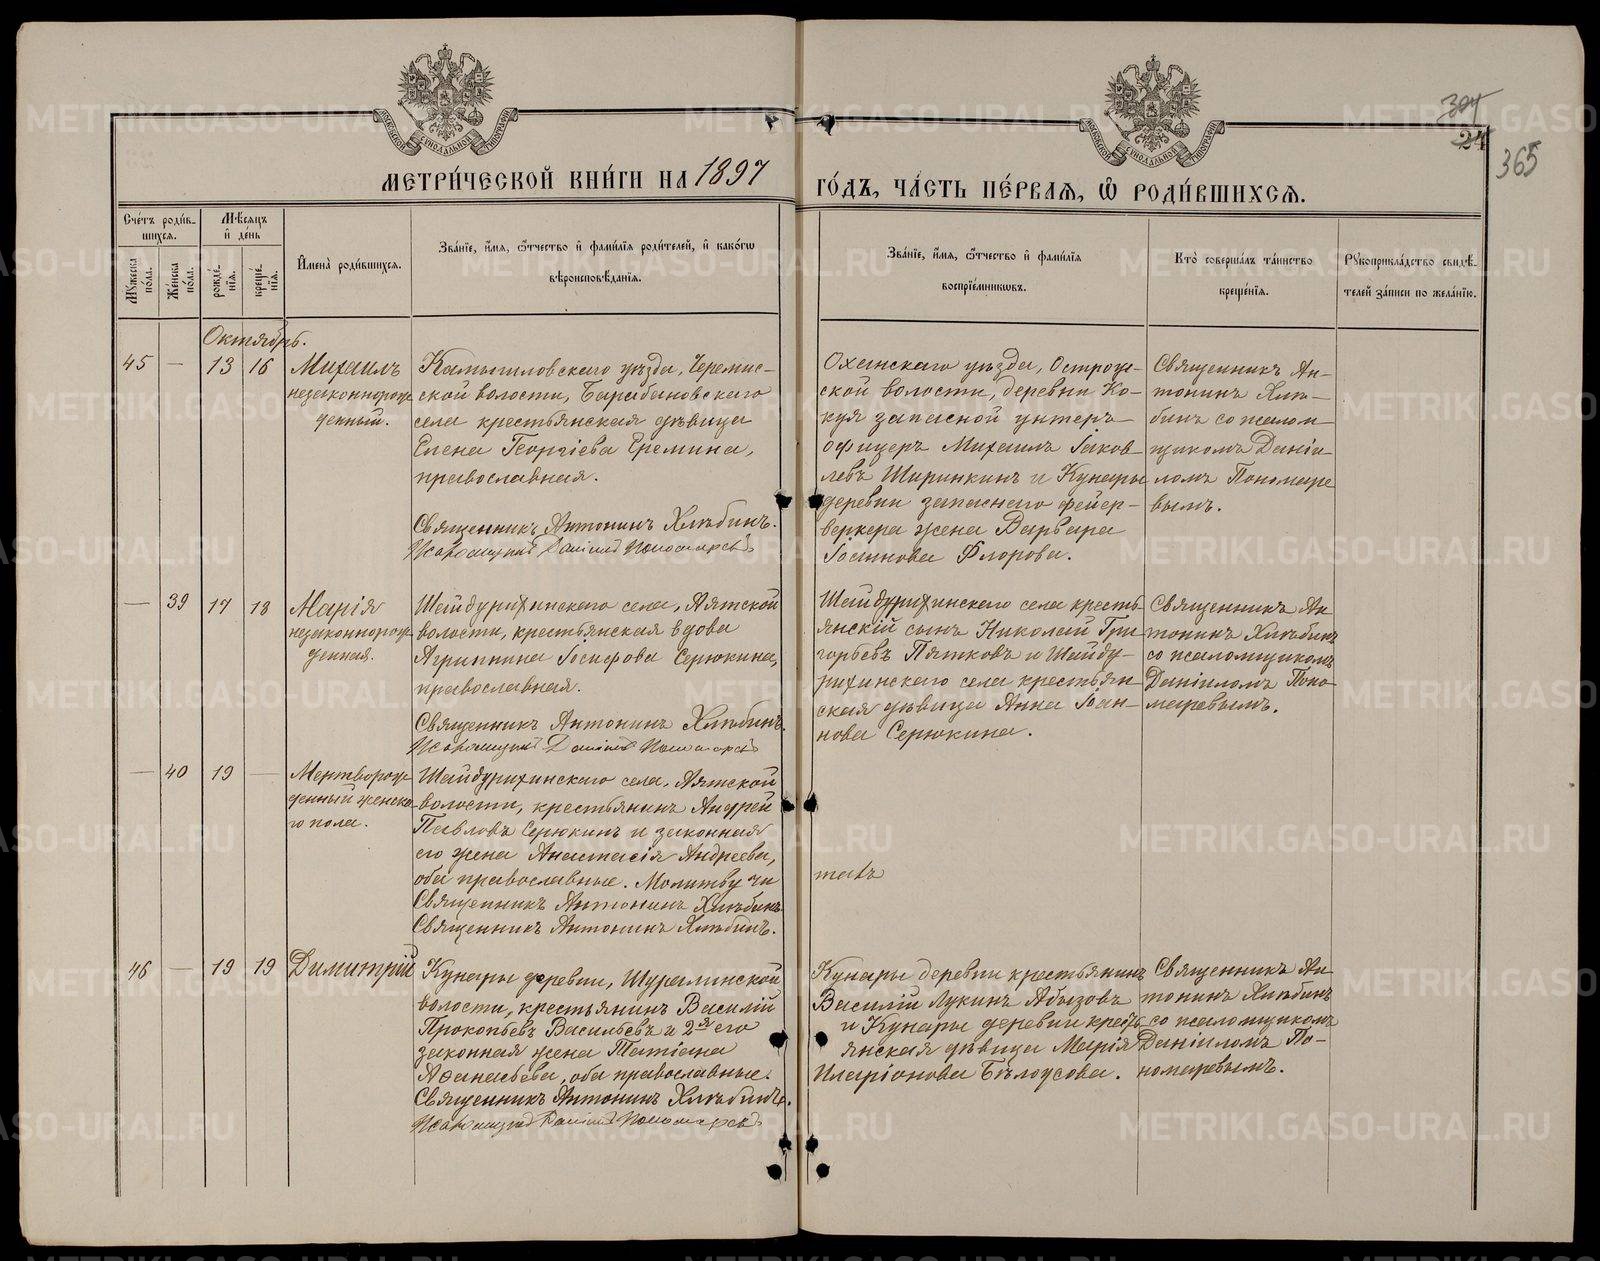 МОСКОВСКОЙ СѴНОДАЛЬНОЙ ТИПОГРАФІИ
МОСКОВСКОЙ СѴНОДАЛЬНОЙ ТИПОГРАФІИ
24
365
МЕТРИ́ЧЕСКОЙ КНИ́ГИ НА 1897
ГО́ДЪ, ЧА́СТЬ ПЕ́РВАЯ, Ѡ РОДИ́ВШИХСЯ.
Сче́тъ роди́в-
шихся.
Мѣ́сяцъ
и҆ де́нь
Му́жеска по́ла.
Же́нска по́ла.
рожде́нїя.
креще́нїя.
И҆мена̀ роди́вшихся.
Зва́нїе, и҆́мя, ѻ҆́тчество и҆ фами́лїя роди́телей, и҆ како́гѡ
вѣроисповѣ́данїя.
Зва́нїе, и҆́мя, ѻ҆́тчество и҆ фами́лїя
воспрїе́мниковъ.
Кто̀ соверша́лъ та́инство
креще́нїя.
Рукоприкла́дство свидѣ́-
телей за́писи по жела́нїю.
Октябрь.
45 — 13 16 Михаилъ
незаконнорож
денный.
Камышловскаго уѣзда, Черемис-
ской волости, Барабановскаго
села крестьянская дѣвица
Елена Георгіева Еремина,
православная.
Священникъ Антонинъ Хлѣбинъ.
Псаломщикъ Даніилъ Пономаревъ
Оханскаго уѣзда, Остроже-
ской волости, деревни Ко-
куя запасной унтеръ-
офицеръ Михаилъ Іаков-
левъ Ширинкинъ и Кунары
деревни запаснаго фейер-
веркера жена Варвара
Іоаннова Флорова.
Священникъ Ан-
тонинъ Хлѣ-
бинъ со псалом-
щикомъ Даніи-
ломъ Пономаре
вымъ.
— 39 17 18 Марія
незаконнорож
денная.
Шайдурихинскаго села, Аятской
волости, крестьянская вдова
Агриппина Іосифова Серюкина,
православная.
Священникъ Антонинъ Хлѣбинъ.
Псаломщикъ Даніилъ Пономаревъ
Шайдурихинскаго села кресть-
янскій сынъ Николай Гри
горьевъ Пятковъ и Шайду-
рихинскаго села крестьян-
ская дѣвица Анна Іоан-
нова Серюкина.
Священникъ Ан-
тонинъ Хлѣбинъ
со псаломщикомъ
Даніиломъ Поно-
маревымъ.
— 40 19 — Мертворож-
денный женска-
го пола.
Шайдурихинскаго села, Аятской
волости, крестьянинъ Андрей
Павловъ Серюкинъ и законная
его жена Анастасія Андреева,
оба православные. Молитву чи
Священникъ Антонинъ Хлѣбинъ
Священникъ Антонинъ Хлѣбинъ.
талъ
46 — 19 19 Димитрій
Кунары деревни, Шуралинской
волости, крестьянинъ Василій
Прокопьевъ Васильевъ и 2я его
законная жена Татіана
Аѳанасьева, оба православные.
Священникъ Антонинъ Хлѣбинъ.
Псаломщикъ Даніилъ Пономаревъ
Кунары деревни крестьянинъ
Василій Лукинъ Абызовъ
и Кунары деревни кресть-
янская дѣвица Марія
Иларіонова Бѣлоусова.
Священникъ Ан-
тонинъ Хлѣбинъ
со псаломщикомъ
Даніиломъ По-
номаревымъ.
METRIKI.GASO-URAL.RU